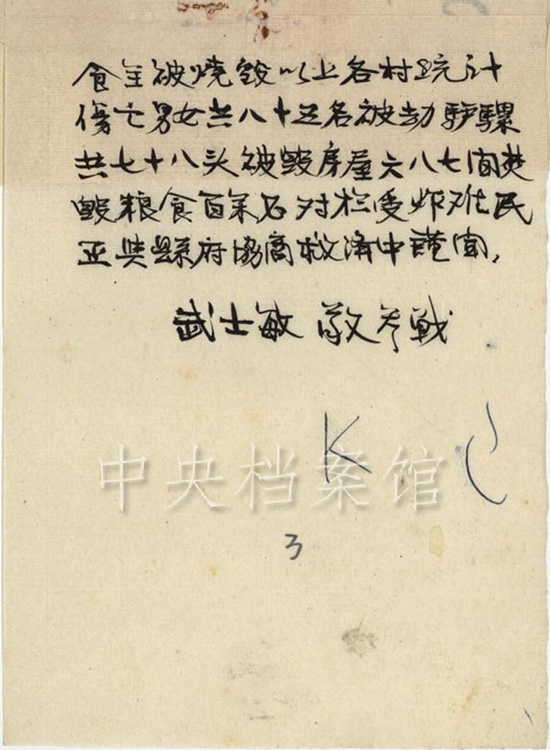 食全被烧毁以上各村统计
傷亡男女共八十五名被劫驴騾
共七十八头被毁房屋六八七间焚
毁粮食百余石对於受炸难民
正與縣府協商救濟中謹聞，
武士敏 敬参戰
K
中央档案馆
3